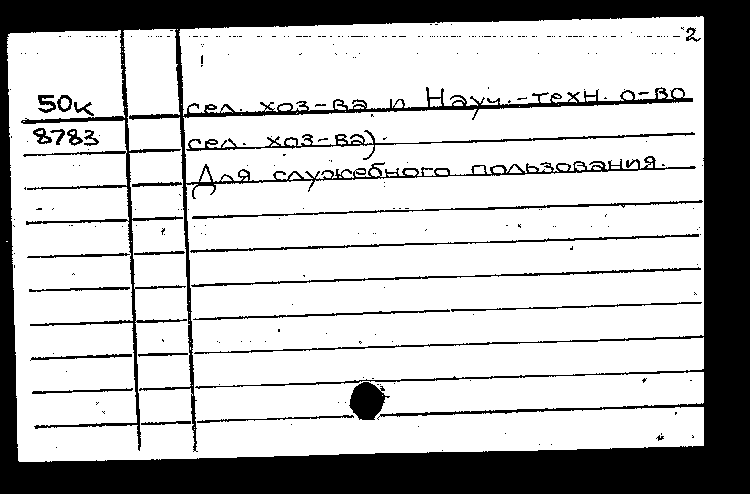 2
50к сел. хоз-ва и Науч.-техн. о-во
8783 сел. хоз-ва).
Для служебного пользования.